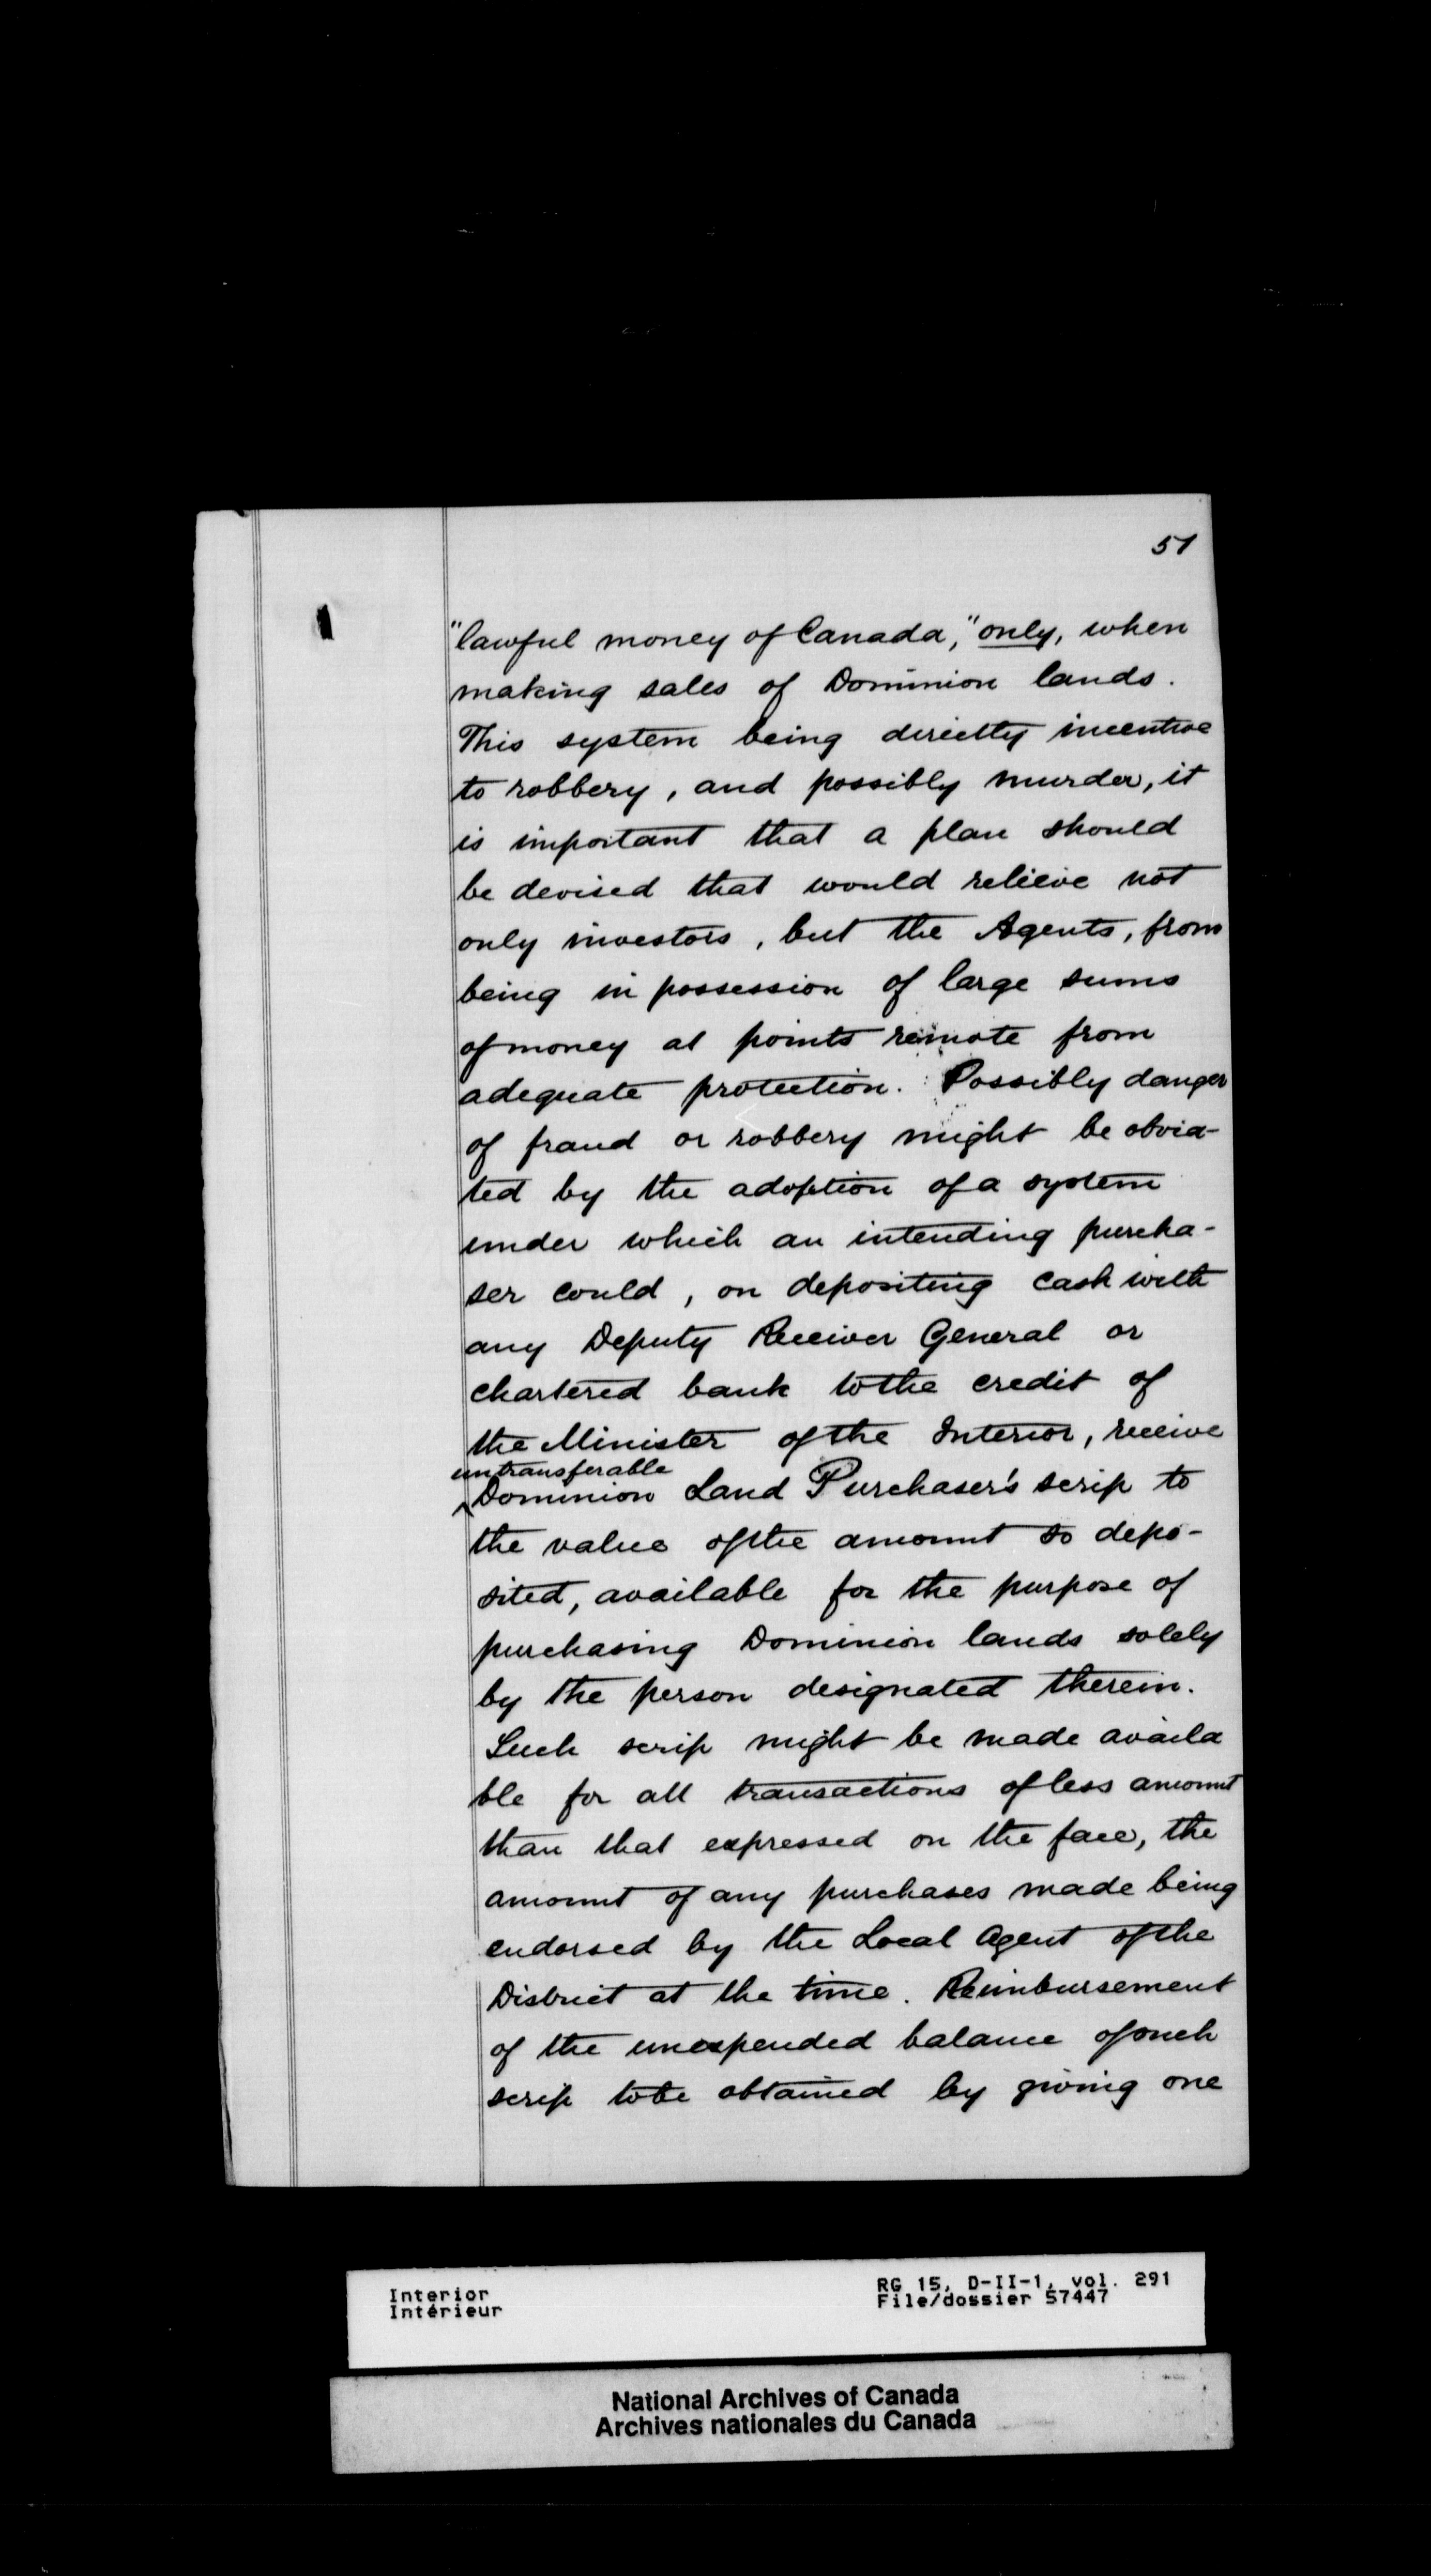 51
"lawful money of Canada," only, when
making sales of Dominion lands.
This system being directly incentive
to robbery, and possibly murder, it
is important that a plan should
be devised that would relieve not
only investors, but the Agents, from
being in possession of large sums
of money at points remote from
adequate protection. Possibly danger
of fraud or robbery might be obvia-
ted by the adoption of a system
under which an intending purcha-
ser could, on depositing cash with
any Deputy Receiver General or
chartered bank to the credit of
the Minister of the Interior, receive
untransferable
^Dominion Land Purchaser's scrip to
the value of the amount so depo-
sited, available for the purpose of
purchasing Dominion lands solely
by the person designated therein.
Such scrip might be made availa
ble for all transactions of less amount
than that expressed on the face, the
amount of any purchases made being
endorsed by the Local Agent of the
District at the time. Reimbursement
of the unexpended balance of such
scrip to be obtained by giving one
Interior
Intérieur
RG 15, D-II-1, vol. 291
File/dossier 57447
National Archives of Canada
Archives nationales du Canada